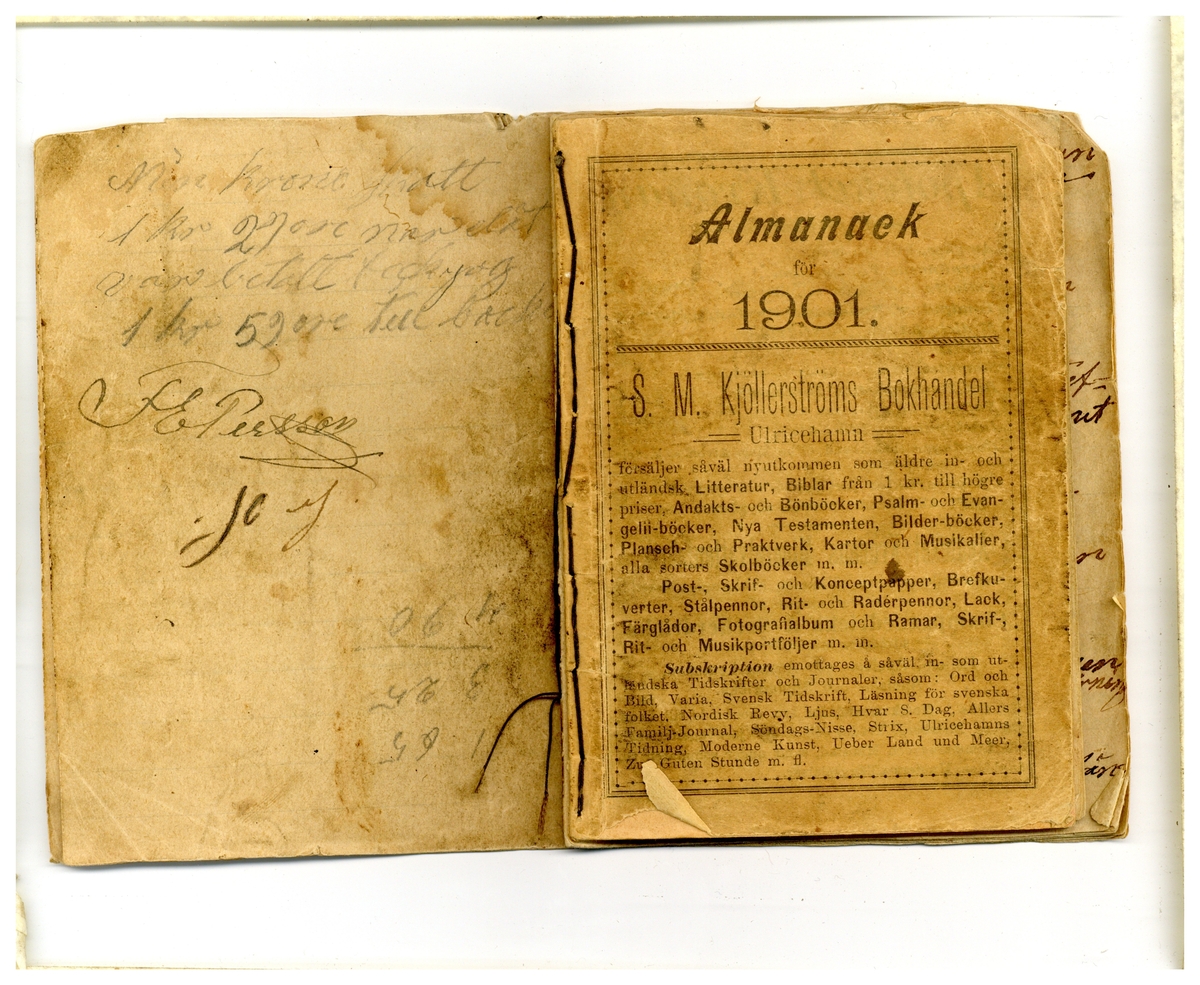 Min krone
1 kr 27 öre när
vars
1 kr 52 öre till
F E Persson
4 90
3 25
1 65
Almanack
för
1901.
S. M. Kjöllerströms Bokhandel
Ulricehamn
försäljer såväl nyutkommen som äldre in- och
utländsk Litteratur, Biblar från 1 kr. till högre
priser, Andakts- och Bönböcker, Psalm- och Evan-
gelii-böcker, Nya Testamenten, Bilder-böcker,
Plansch- och Praktverk, Kartor och Musikalier,
alla sorters Skolböcker m. m.
Post-, Skrif- och Konceptpapper, Brefku-
verter, Stålpennor, Rit- och Raderpennor, Lack,
Färglådor, Fotografialbum och Ramar, Skrif-,
Rit- och Musikportföljer m. m.
Subskription emottages å såväl in- som ut-
ländska Tidskrifter och Journaler, såsom: Ord och
Bild, Varia, Svensk Tidskrift, Läsning för svenska
folket, Nordisk Revy, Ljus, Hvar 8. Dag, Allers
Familj-Journal, Söndags-Nisse, Strix, Ulricehamns
Tidning, Moderne Kunst, Ueber Land und Meer,
Zur Guten Stunde m. fl.